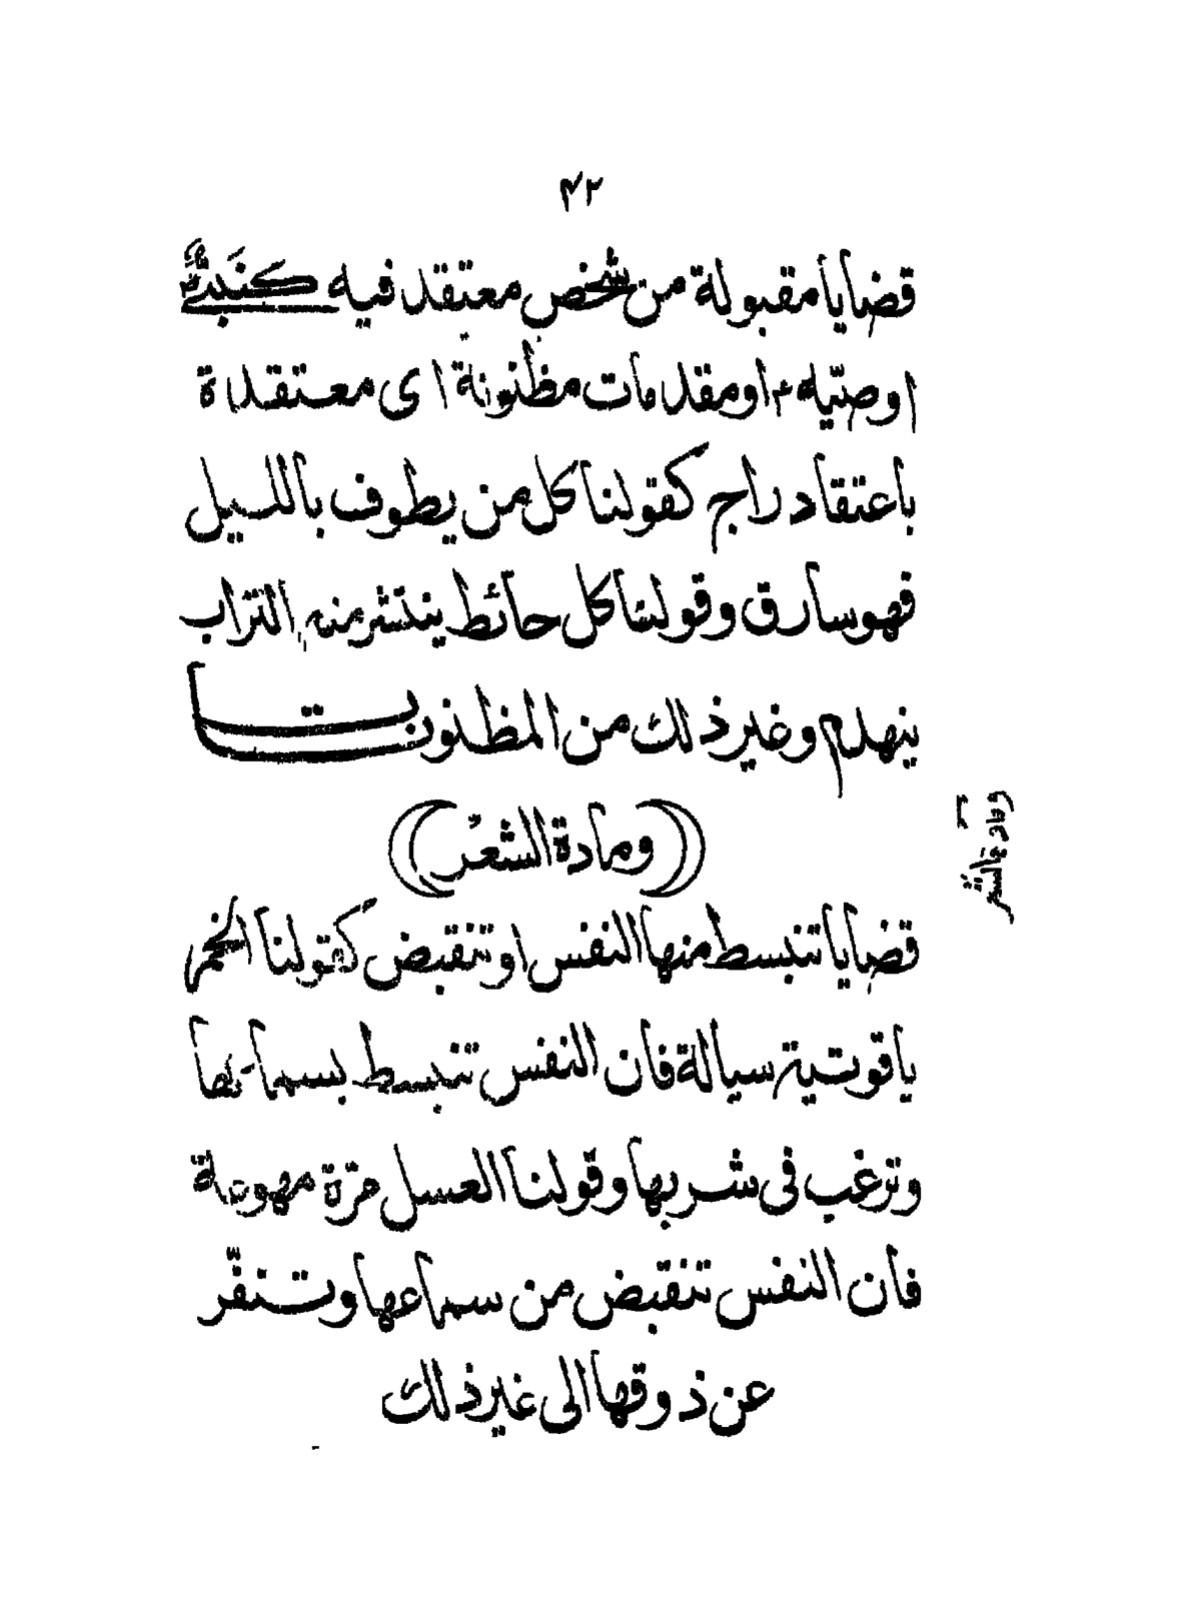 ۴۲
قضايا مقبولة من شخص معتقد فيه كنبي
او وصيه او مقدمات مظنونة اى معتقدة
باعتقاد راجح كقولنا كل من يطوف بالليل
فهو سارق وقولنا كل حائط ينتثر منه التراب
ينهدم وغير ذلك من المظنونات
(ومادة الشعر)
قضايا تنبسط منها النفس او تنقبض كقولنا الخمر
ياقوتية سيالة فان النفس تنبسط بسماعها
وترغب فى شربها وقولنا العسل مرّة مهوعة
فان النفس تنقبض من سماعها وتنفّر
عن ذوقها الى غير ذلك
ومادة الشعر